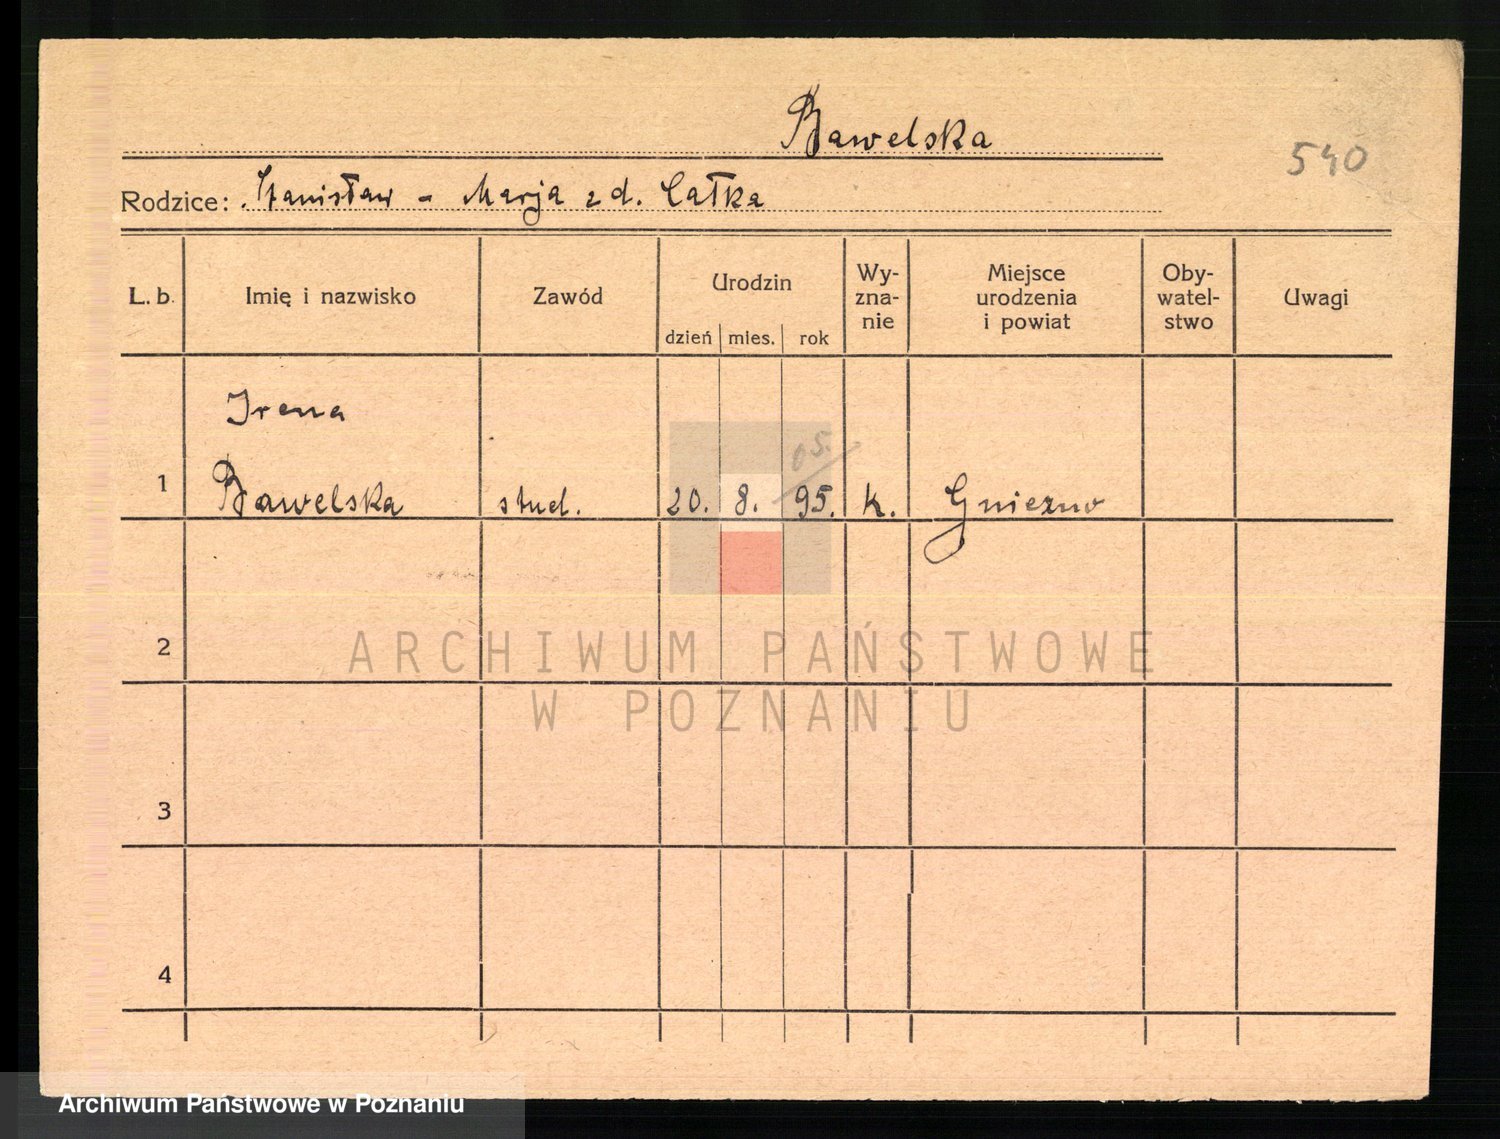 Bawelska
540
Rodzice: Stanisław - Marja z d. Całka
L. b. Imię i nazwisko Zawód Urodzin dzień mies. rok Wy-zna-nie Miejsce urodzenia i powiat Oby-watel-stwo Uwagi
Irena
05.
1 Bawelska stud. 20. 8. 95. k. Gniezno
2
ARCHIWUM PAŃSTWOWE
W POZNANIU
3
4
Archiwum Państwowe w Poznaniu